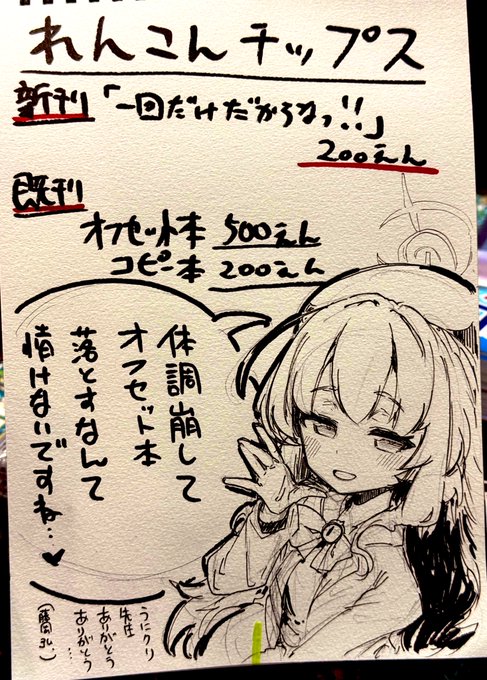 れんこんチップス
新刊「一回だけだからなっ!!」
200えん
既刊
オフセット本 500えん
コピー本 200えん
体調崩して
オフセット本
落とすなんて
情けないですね…♥
うにクリ
先生
ありがとう
ありがとう…